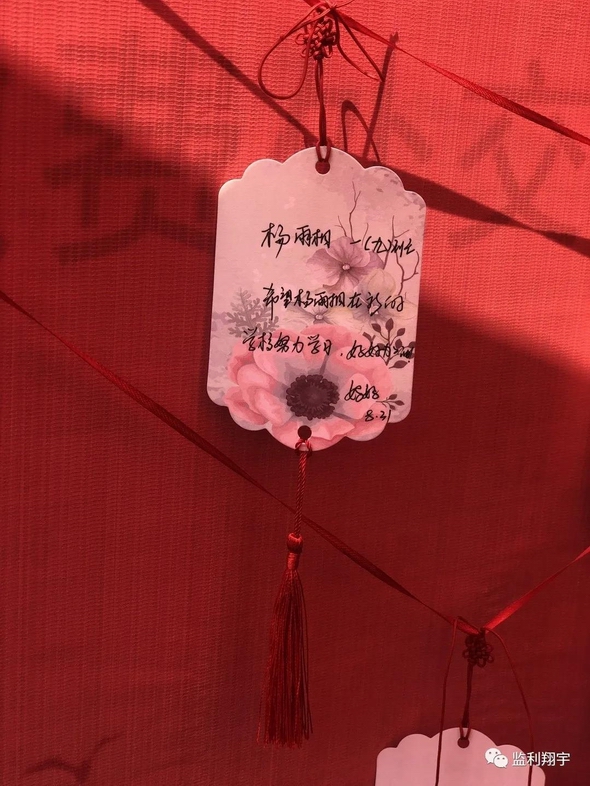 杨雨桐 一(九)班
希望杨雨桐在新的
学校努力学习，好好
8.31
监利翔宇